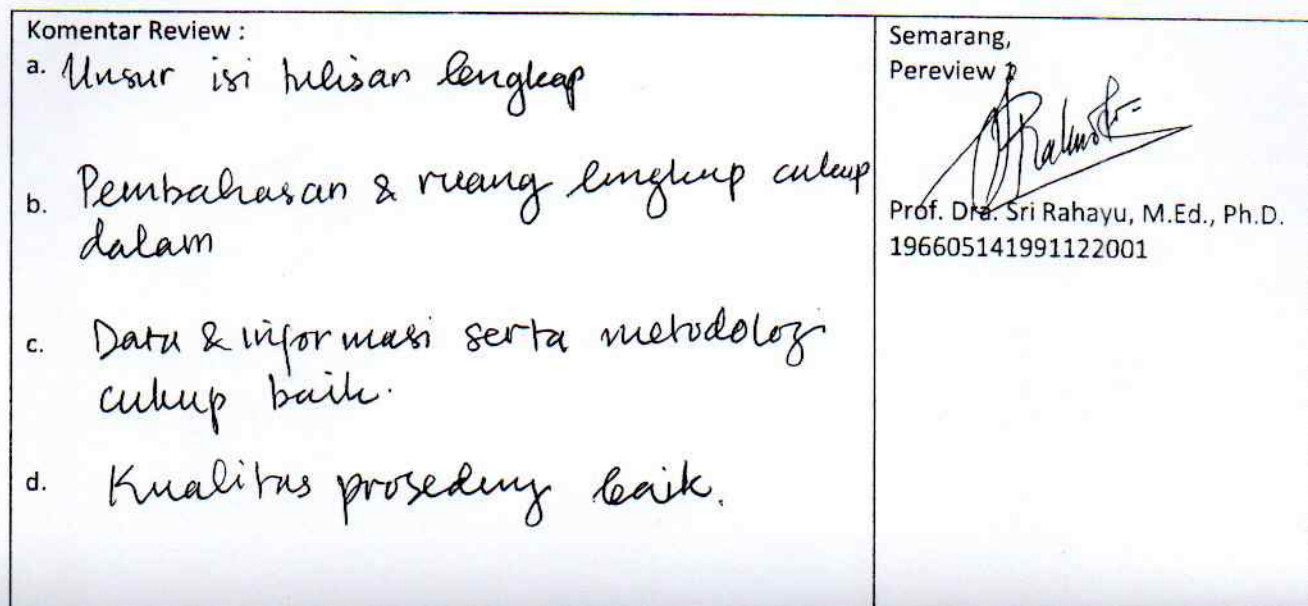 Komentar Review :
a. Unsur isi tulisan lengkap
b. Pembahasan & ruang lingkup cukup
dalam
c. Data & informasi serta metodologi
cukup baik.
d. Kualitas proseding baik.
Semarang,
Pereview 2
Prof. Dra. Sri Rahayu, M.Ed., Ph.D.
196605141991122001